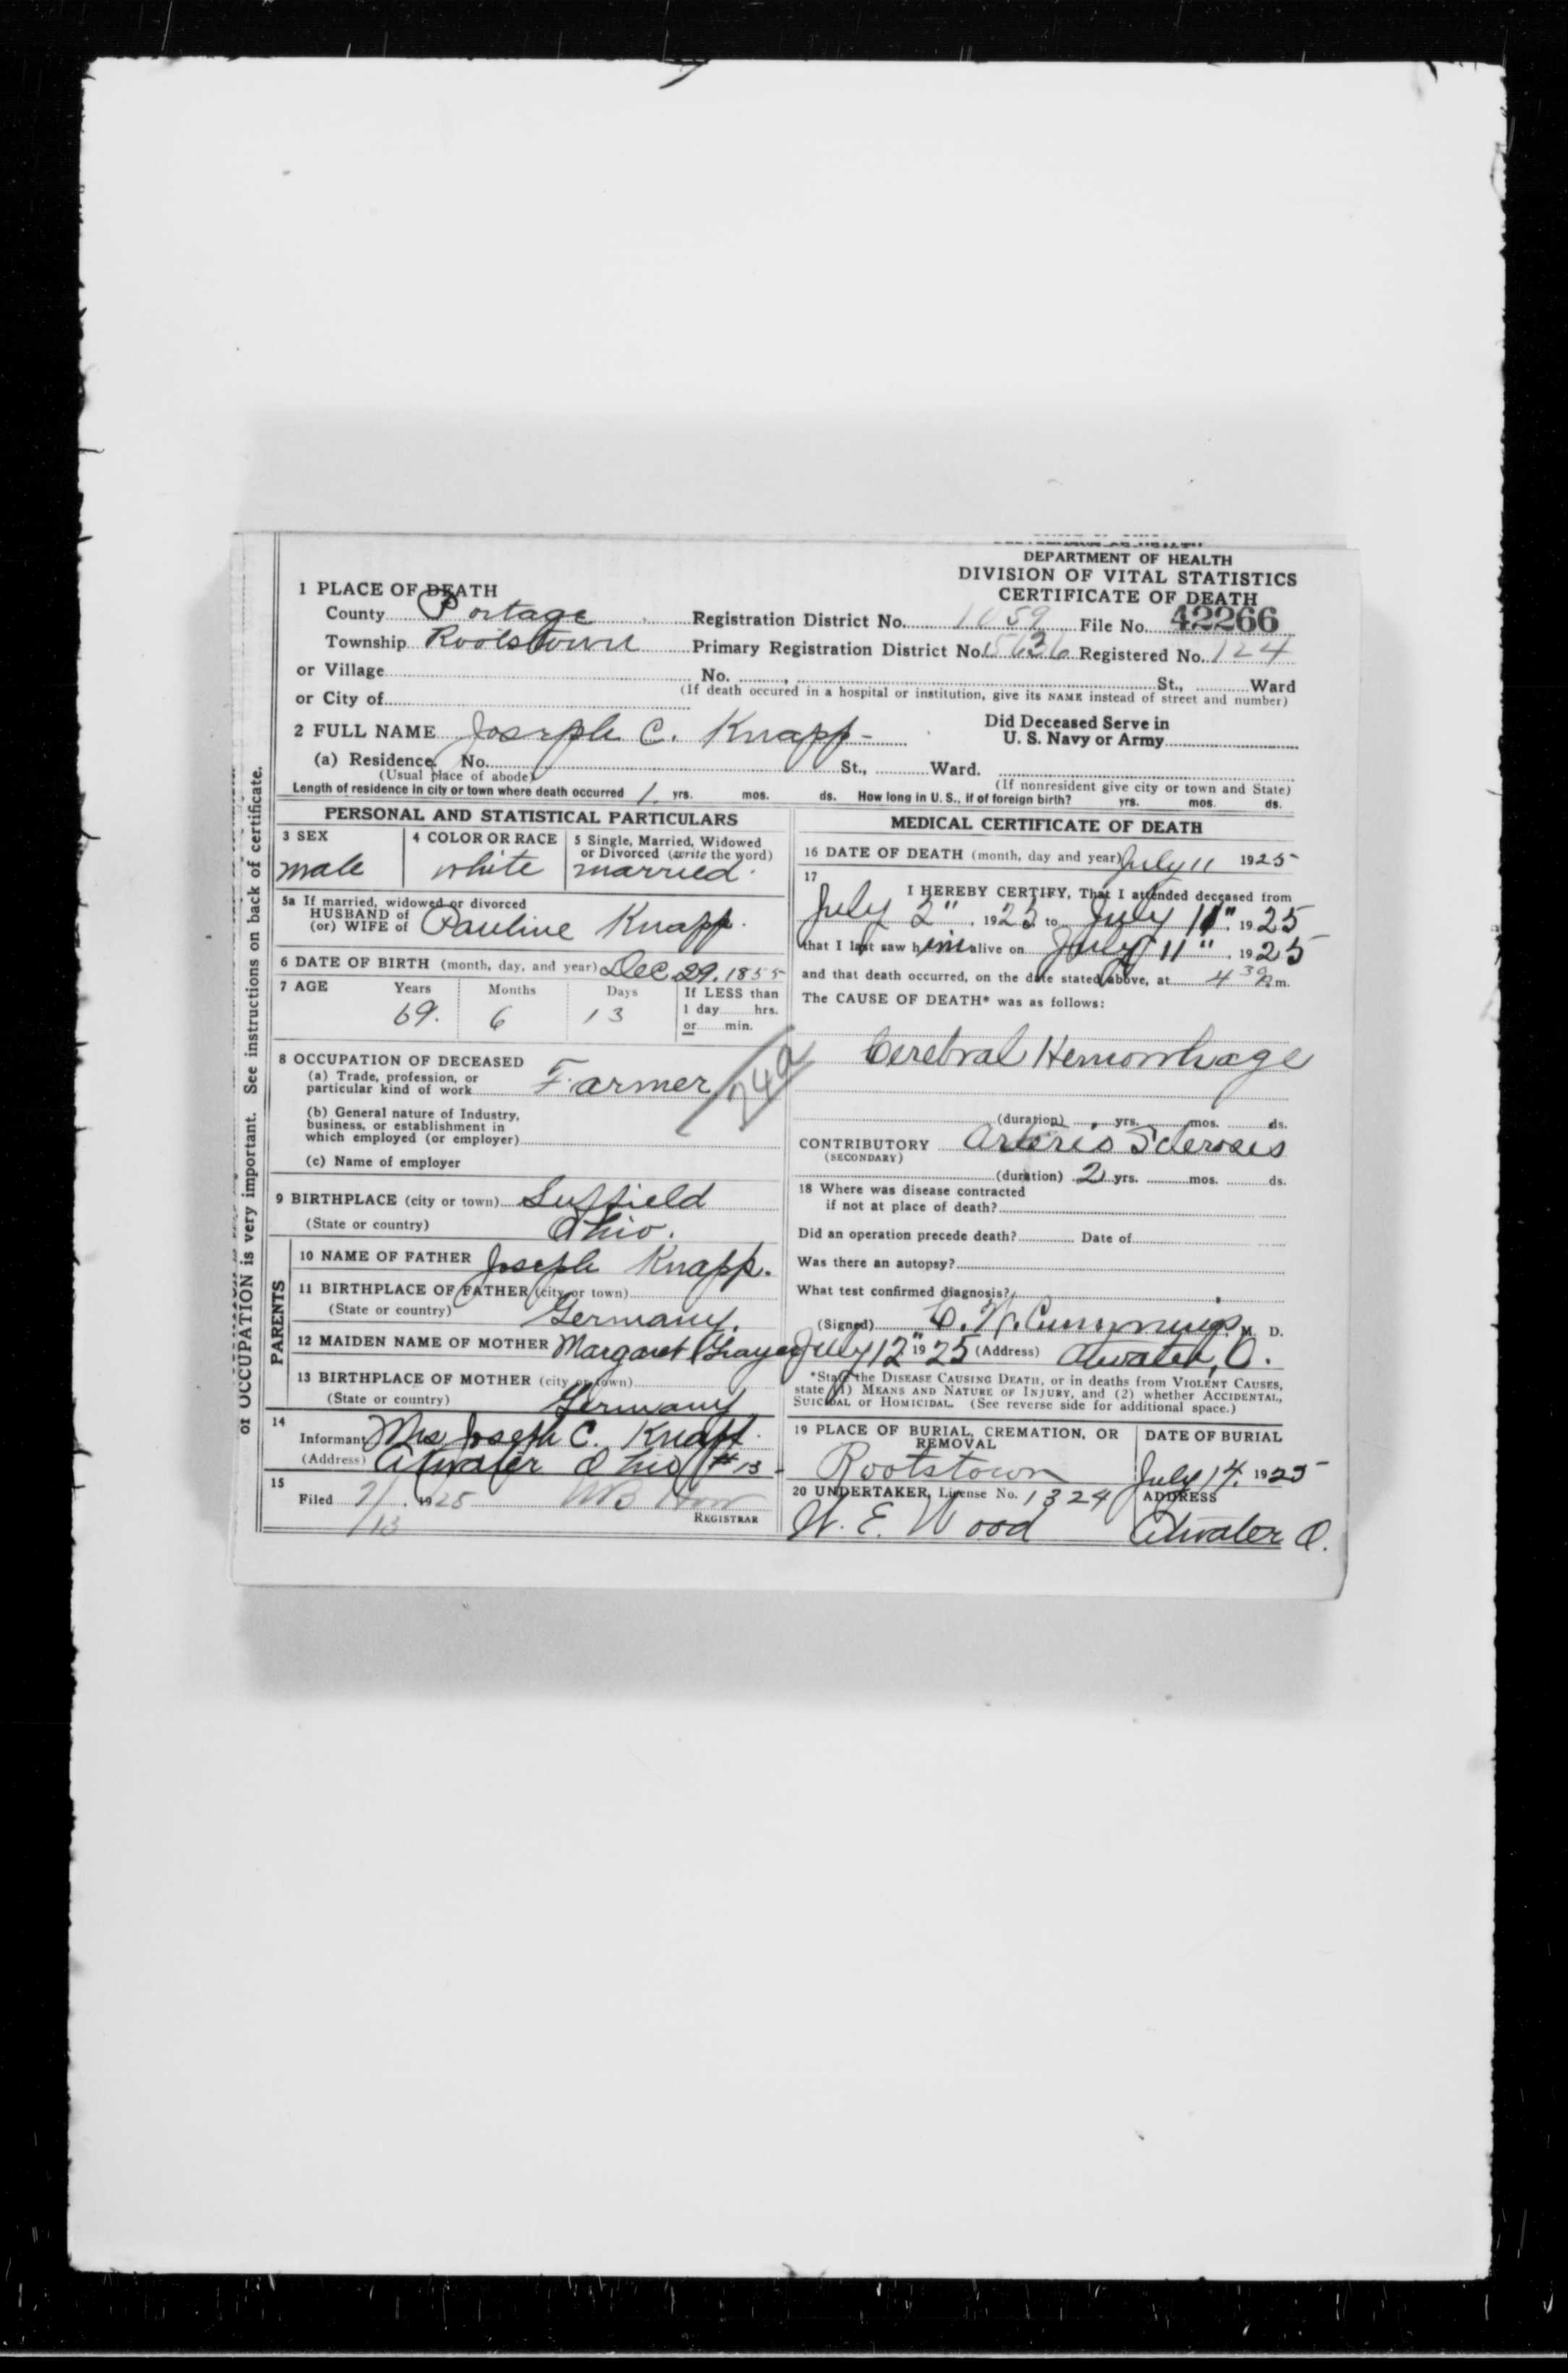 DEPARTMENT OF HEALTH
DIVISION OF VITAL STATISTICS
CERTIFICATE OF DEATH
1 PLACE OF DEATH
County Portage Registration District No. 1059 File No. 42266
Township Rootstown Primary Registration District No. 5636 Registered No. 124
or Village No. , St., Ward
or City of (If death occured in a hospital or institution, give its NAME instead of street and number)
2 FULL NAME Joseph C. Knapp - Did Deceased Serve in
U. S. Navy or Army
(a) Residence. No. St., Ward.
(Usual place of abode) (If nonresident give city or town and State)
Length of residence in city or town where death occurred 1 yrs. mos. ds. How long in U. S., if of foreign birth? yrs. mos. ds.
PERSONAL AND STATISTICAL PARTICULARS
3 SEX 4 COLOR OR RACE 5 Single, Married, Widowed
or Divorced (write the word)
male white married.
5a If married, widowed or divorced
HUSBAND of
(or) WIFE of Pauline Knapp.
6 DATE OF BIRTH (month, day, and year) Dec 29. 1855
7 AGE Years Months Days If LESS than
1 day hrs.
or min.
69. 6 13
8 OCCUPATION OF DECEASED
(a) Trade, profession, or
particular kind of work Farmer
74a
(b) General nature of Industry,
business, or establishment in
which employed (or employer)
(c) Name of employer
9 BIRTHPLACE (city or town) Suffield
(State or country) Ohio.
PARENTS
10 NAME OF FATHER Joseph Knapp.
11 BIRTHPLACE OF FATHER (city or town)
(State or country) Germany.
12 MAIDEN NAME OF MOTHER Margaret
13 BIRTHPLACE OF MOTHER (city or town)
(State or country) Germany
14
Informant Mrs Joseph C. Knapp.
(Address) Atwater Ohio #13
15
Filed 7/13 1925
REGISTRAR
MEDICAL CERTIFICATE OF DEATH
16 DATE OF DEATH (month, day and year) July 11 1925
17
I HEREBY CERTIFY, That I attended deceased from
July 2", 1925 to July 11", 1925
that I last saw him alive on July 11", 1925
and that death occurred, on the date stated above, at 4 30 m.
The CAUSE OF DEATH* was as follows:
Cerebral Hemorrhage
(duration) yrs. mos. ds.
CONTRIBUTORY Arterio Sclerosis
(SECONDARY)
(duration) 2 yrs. mos. ds.
18 Where was disease contracted
if not at place of death?
Did an operation precede death? Date of
Was there an autopsy?
What test confirmed diagnosis?
(Signed) C. W. Cummings, M. D.
July 12" 1925 (Address) Atwater, O.
*State the DISEASE CAUSING DEATH, or in deaths from VIOLENT CAUSES,
state (1) MEANS AND NATURE OF INJURY, and (2) whether ACCIDENTAL,
SUICIDAL or HOMICIDAL. (See reverse side for additional space.)
19 PLACE OF BURIAL, CREMATION, OR
REMOVAL
DATE OF BURIAL
Rootstown July 14. 1925
20 UNDERTAKER, License No. 1324 ADDRESS
W. E. Wood Atwater O.
of OCCUPATION is very important. See instructions on back of certificate.